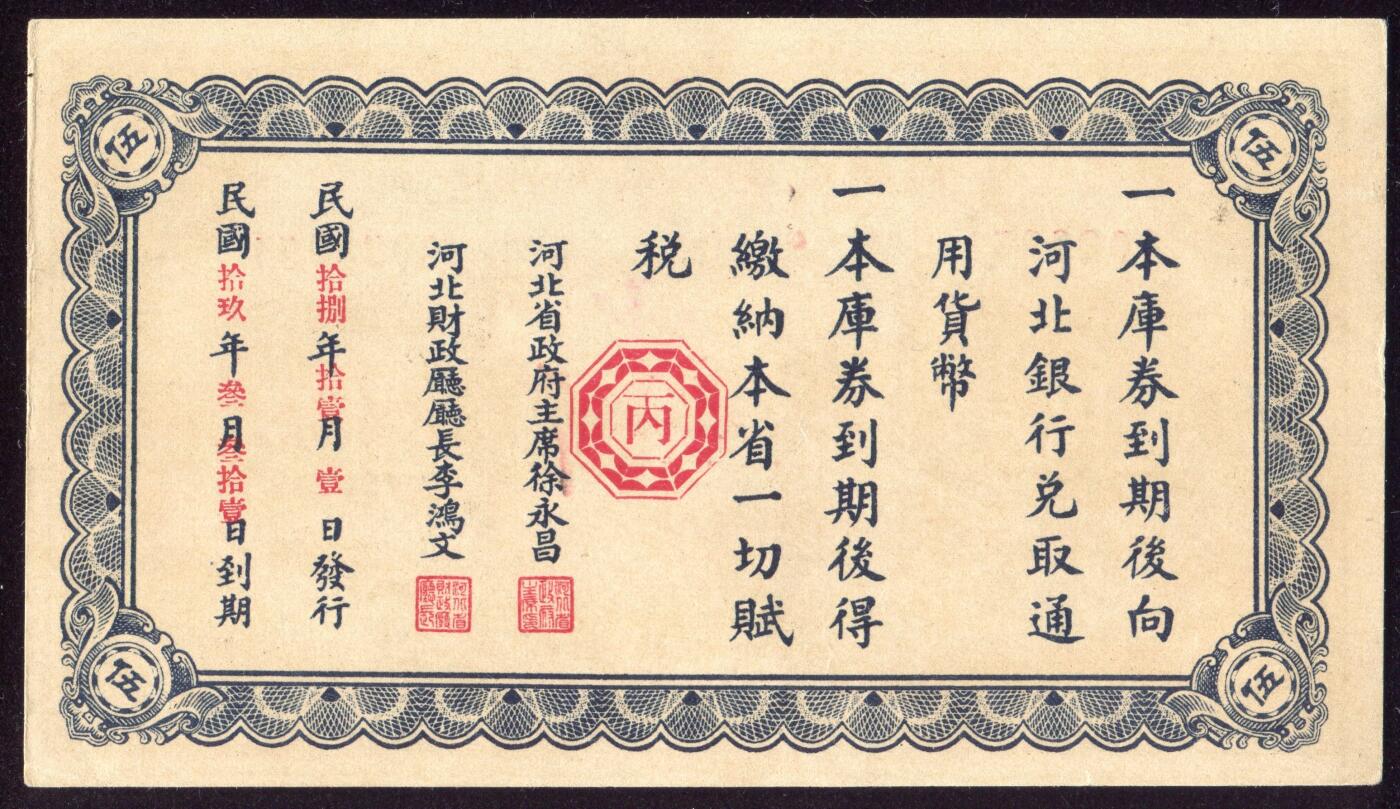 伍
伍
一本庫券到期後向
河北銀行兑取通
用貨幣
一本庫券到期後得
繳納本省一切賦
税
丙
河北省政府主席徐永昌
河北財政廳廳長李鴻文
河北省財政廳廳長
民國拾捌年拾壹月壹日發行
民國拾玖年叁月叁拾壹日到期
伍
伍